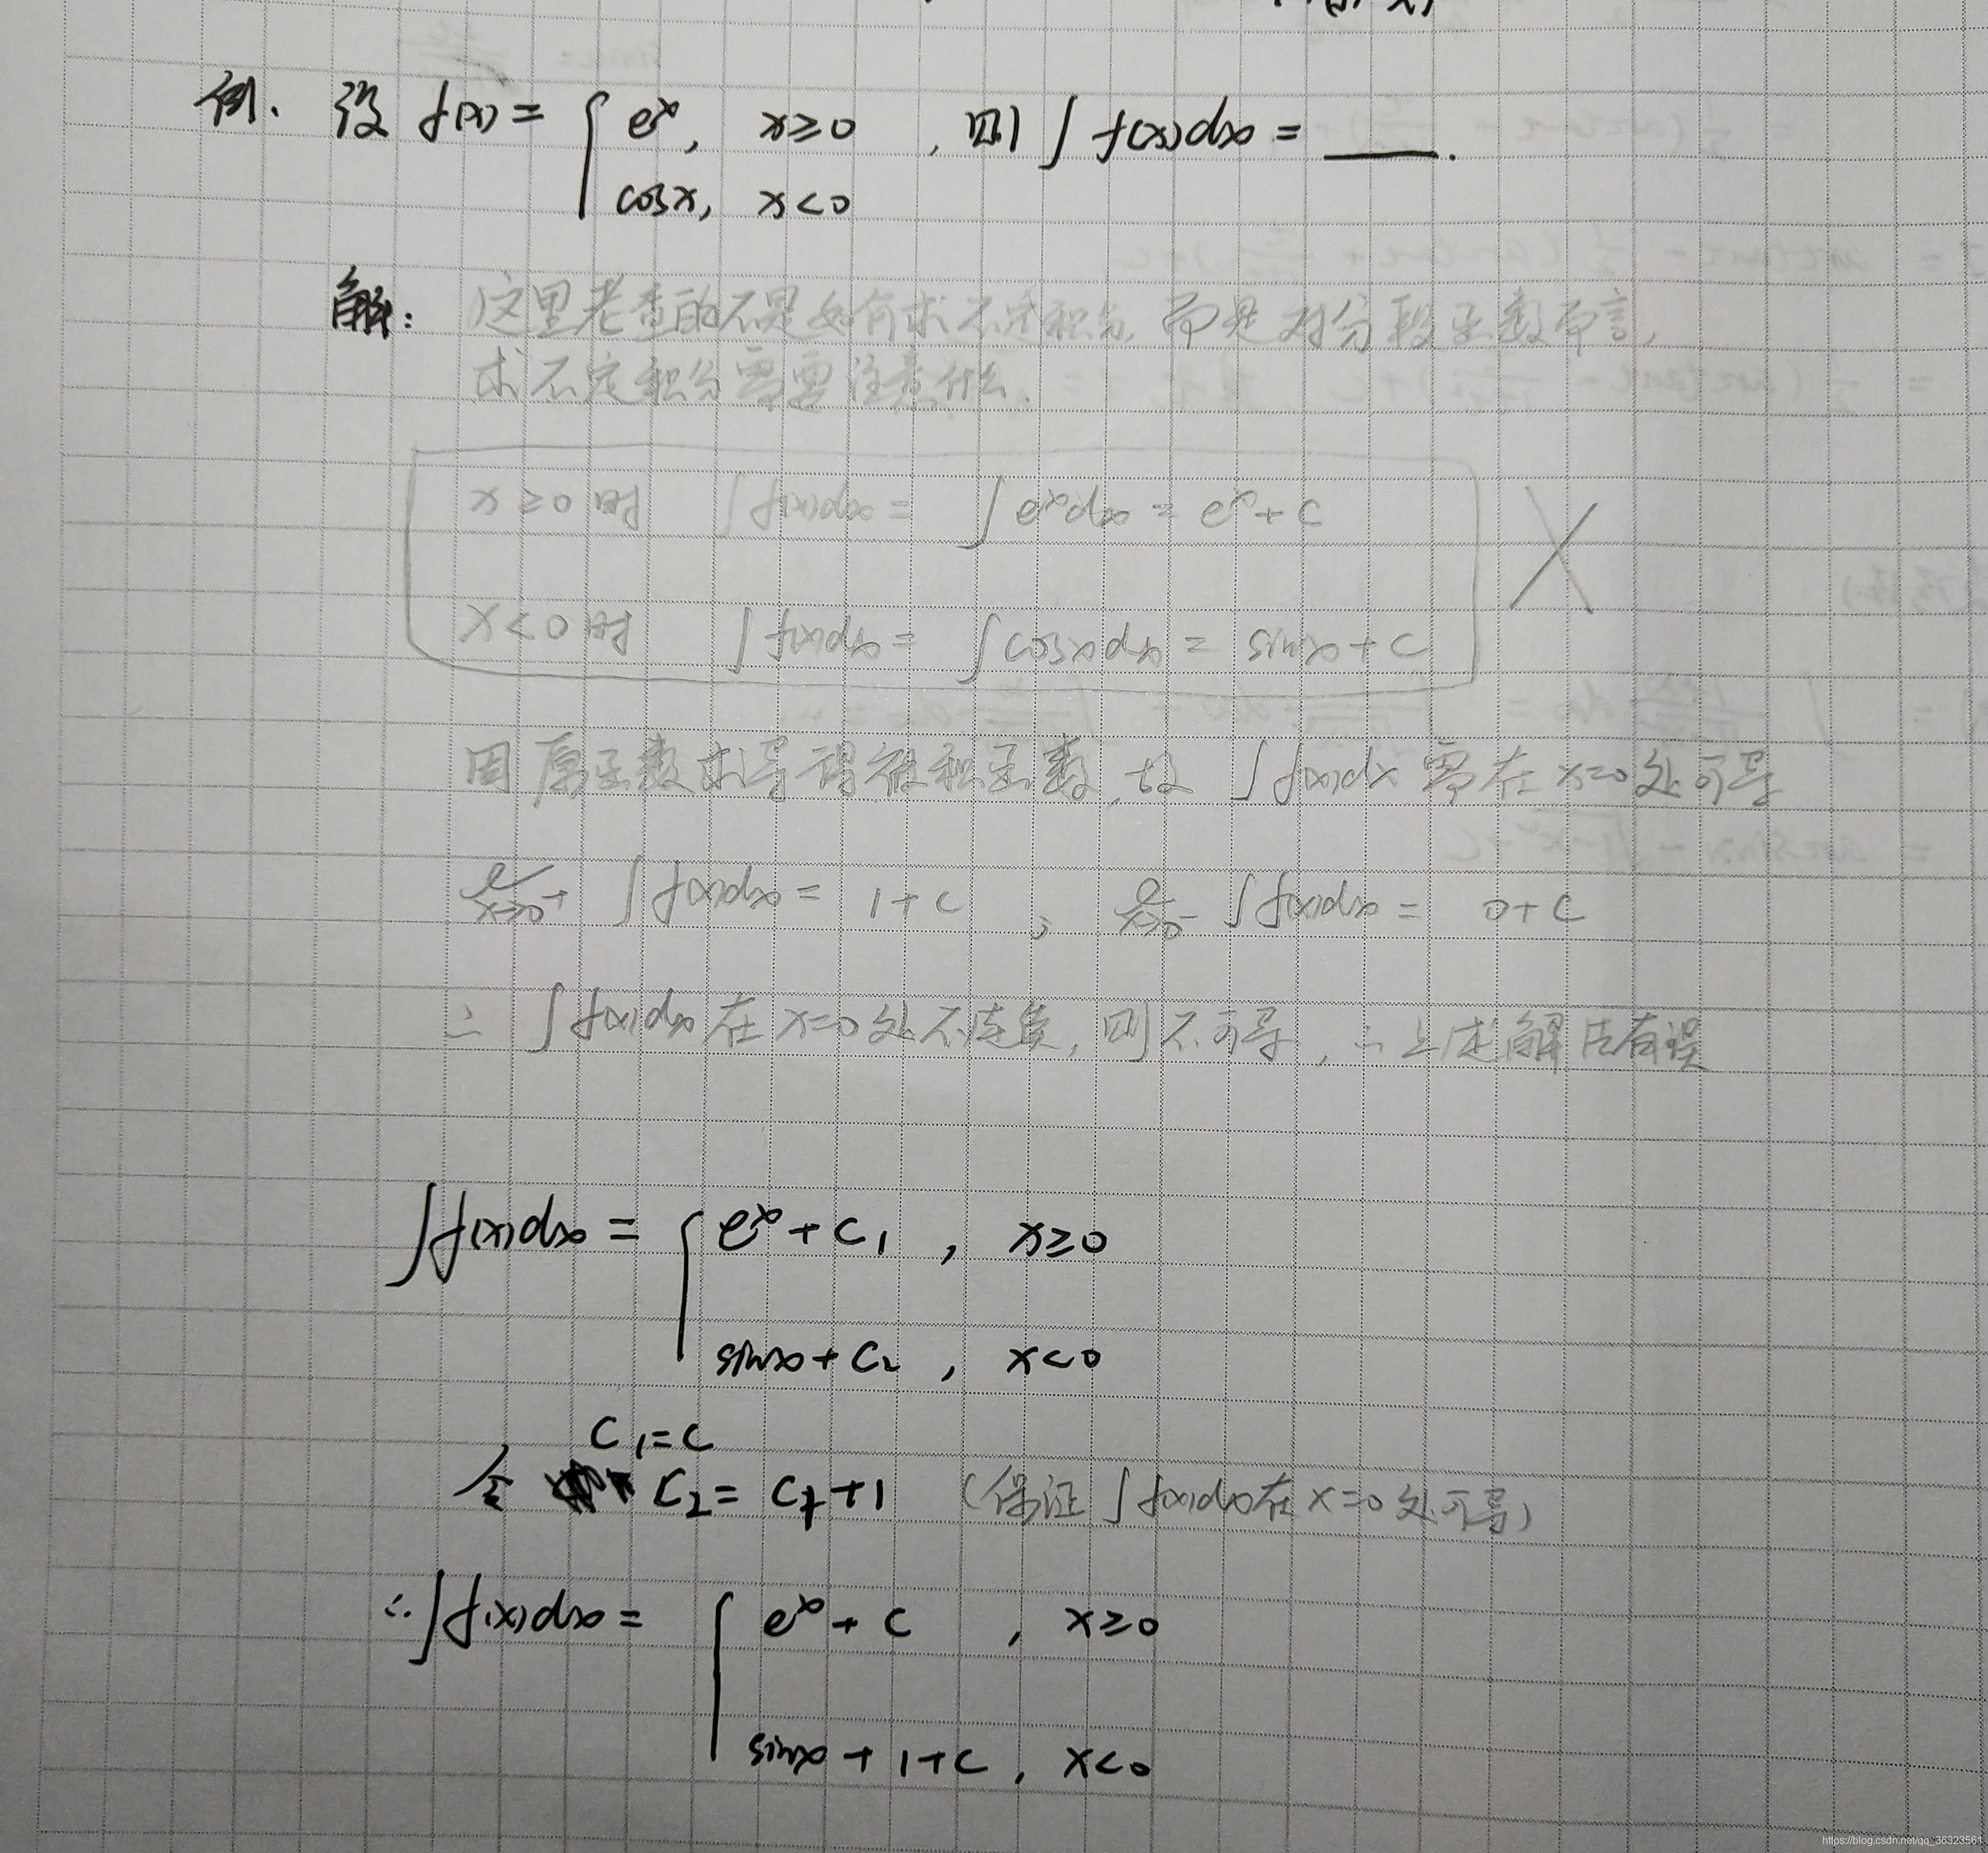 例. 设 f(x) = { e^x, x≥0 , 则 ∫ f(x)dx = ____.
cosx, x<0
解: 这里考查的不是如何求不定积分, 而是对分段函数而言,
求不定积分需要注意什么.
x≥0时 ∫f(x)dx = ∫e^x dx = e^x + C
X<0时 ∫f(x)dx = ∫cosxdx = sinx + C
因原函数求导得被积函数, 故 ∫f(x)dx 需在 x=0 处可导
x→0+ ∫f(x)dx = 1+C , x→0- ∫f(x)dx = 0+C
∴ ∫f(x)dx 在 x=0 处不连续, 则不可导, ∴ 上述解法有误
∫f(x)dx = { e^x + C₁ , x≥0
sinx + C₂ , x<0
C₁=C
令 C₂ = C+1 (保证∫f(x)dx在x=0处可导)
∴∫f(x)dx = { e^x + C , x≥0
sinx + 1+C , x<0
https://blog.csdn.net/qq_36323561